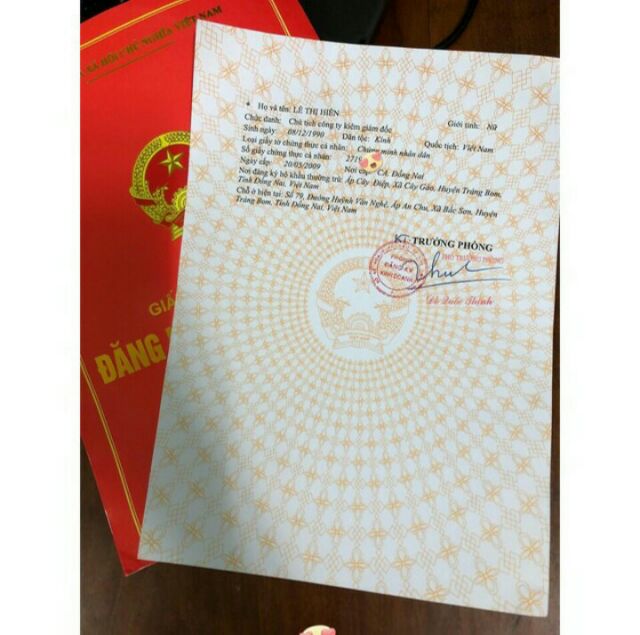 XÃ HỘI CHỦ NGHĨA VIỆT NAM
GIẤ
ĐĂNG
* Họ và tên: LÊ THỊ HIỀN Giới tính: Nữ
Chức danh: Chủ tịch công ty kiêm giám đốc
Sinh ngày: 08/12/1990 Dân tộc: Kinh Quốc tịch: Việt Nam
Loại giấy tờ chứng thực cá nhân: Chứng minh nhân dân
Số giấy chứng thực cá nhân: 2719
Ngày cấp: 20/05/2009 Nơi cấp: CA. Đồng Nai
Nơi đăng ký hộ khẩu thường trú: Ấp Cây Điệp, Xã Cây Gáo, Huyện Trảng Bom,
Tỉnh Đồng Nai, Việt Nam
Chỗ ở hiện tại: Số 79, Đường Huỳnh Văn Nghệ, Ấp An Chu, Xã Bắc Sơn, Huyện
Trảng Bom, Tỉnh Đồng Nai, Việt Nam
KT. TRƯỞNG PHÒNG
PHÓ TRƯỞNG PHÒNG
PHÒNG
ĐĂNG KÝ
KINH DOANH